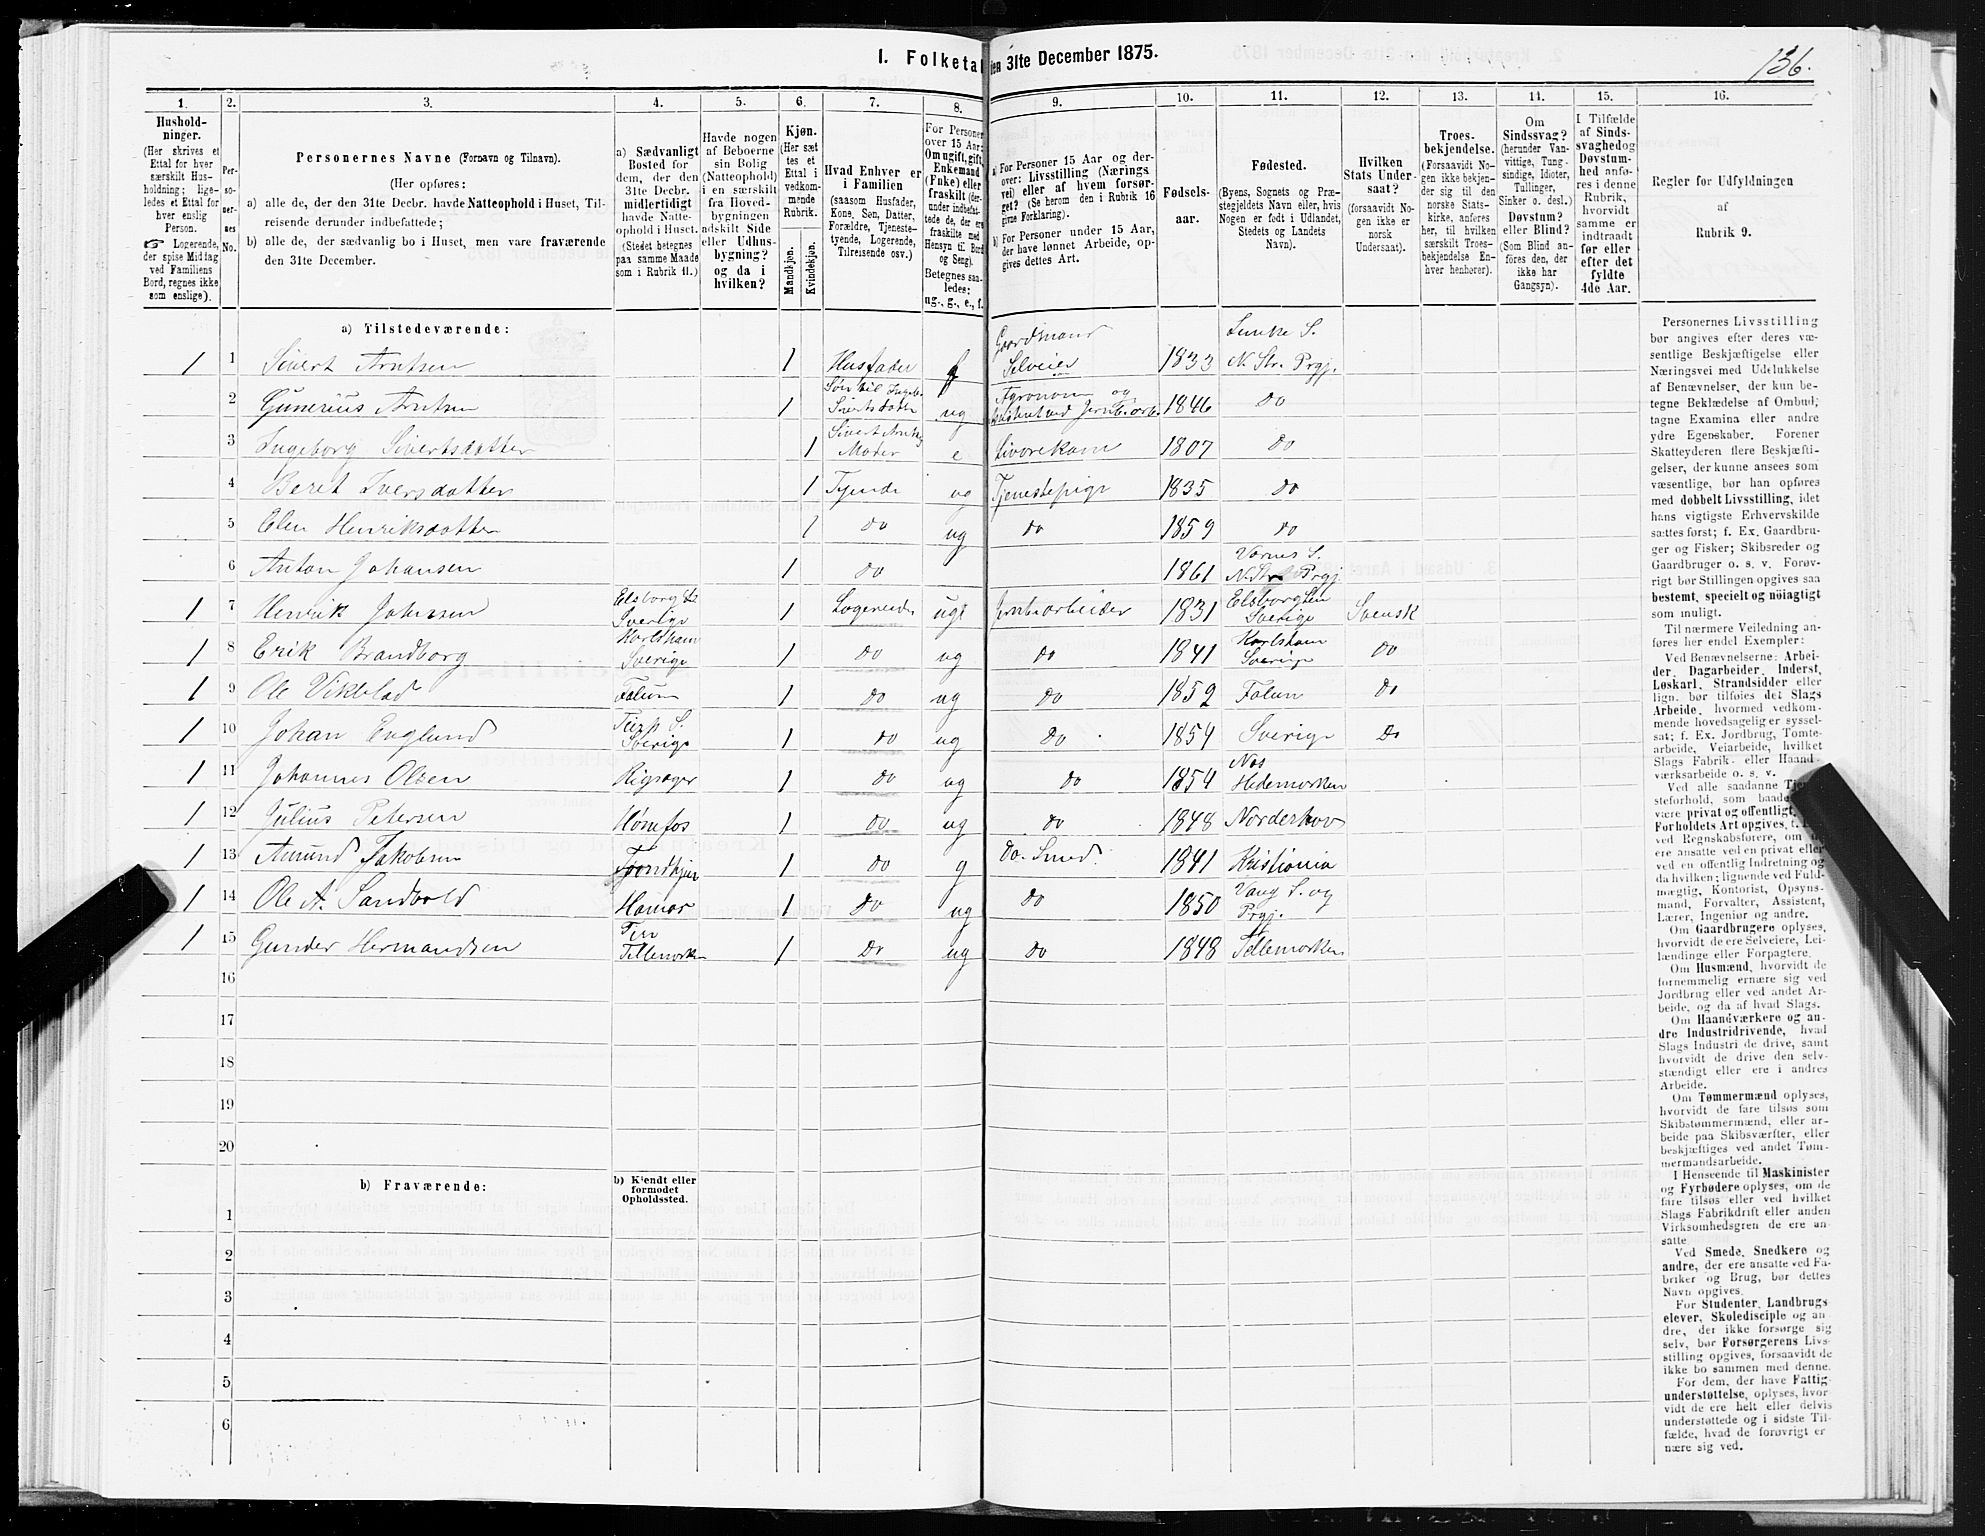 1. Folketal den 31te December 1875.
136.
1. 2. 3. 4. 5. 6. 7. 8. 9. 10. 11. 12. 13. 14. 15. 16.
Hushold-
ninger.
(Her skrives et
Ettal for hver
særskilt Hus-
holdning; lige-
ledes et Ettal for
hver enslig
Person.
☞ Logerende,
der spise Middag
ved Familiens
Bord, regnes ikke
som enslige).
Per-
so-
ner-
nes
No.
Personernes Navne (Fornavn og Tilnavn).
(Her opføres:
a) alle de, der den 31te Decbr. havde Natteophold i Huset, Til-
reisende derunder indbefattede;
b) alle de, der sædvanlig bo i Huset, men vare fraværende
den 31te December.
a) Sædvanligt
Bosted for
dem, der den
31te Decbr.
midlertidigt
havde Natte-
ophold i Huset.
(Stedet betegnes
paa samme Maade
som i Rubrik 11.)
Havde nogen
af Beboerne
sin Bolig
(Natteophold)
i en særskilt
fra Hoved-
bygningen
adskilt Side
eller Udhus-
bygning?
og da i
hvilken?
Kjøn.
(Her sæt
tes et
Ettal i
vedkom-
mende
Rubrik.
Mandkjøn.
Kvindekjøn.
Hvad Enhver er
i Familien
(saasom Husfader,
Kone, Søn, Datter,
Forældre, Tjeneste-
tyende, Logerende,
Tilreisende osv.)
For Personer
over 15 Aar:
Om ugift, gift,
Enkemand
(Enke) eller
fraskilt (der-
under indbefat-
tede de, der ere
fraskilte med
Hensyn til Bord
og Seng).
Betegnes saa-
ledes:
ug., g., e., f.
a) For Personer 15 Aar og der-
over: Livsstilling (Nærings
vei) eller af hvem forsør-
get? (Se herom den i Rubrik 16
givne Forklaring).
b) For Personer under 15 Aar,
der have lønnet Arbeide, op-
gives dettes Art.
Fødsels-
aar.
Fødested.
(Byens, Sognets og Præ-
stegjeldets Navn eller, hvis
Nogen er født i Udlandet,
Stedets og Landets
Navn).
Hvilken
Stats Under-
saat?
(forsaavidt No-
gen ikke er
norsk
Undersaat).
Troes-
bekjendelse.
(Forsaavidt No-
gen ikke bekjen-
der sig til den
norske Stats-
kirke, anføres
her, til hvilken
særskilt Troes-
bekjendelse En-
hver henhører).
Om
Sindssvag?
(herunder Van-
vittige, Tung-
sindige, Idioter,
Tullinger,
Sinker o. desl.)
Døvstum?
eller Blind?
(Som Blind an-
føres den, der
ikke har
Gangsyn).
I Tilfælde
af Sinds-
svaghed og
Døvstum-
hed anfø-
res i denne
Rubrik,
hvorvidt
samme er
indtraadt
før eller
efter det
fyldte
4de Aar.
Regler for Udfyldningen
af
Rubrik 9.
a) Tilstedeværende:
1 1 Sivert Arntsen 1 Husfader Gaardmand Selveier 1833 N. Str. Prgj.
2 Gunerius Arntsen 1 Søn til Ingebr. Sivertsdatter ug Agronom og Assistent ved Jernb. arb. 1846 do
3 Ingeborg Sivertsdatter 1 Sivert Arntsens Moder e Livørekone 1807 do
4 Beret Iversdatter 1 Tyende ug Tjenestepige 1835 do
5 Elen Henriksdatter 1 do ug do 1859 do
6 Anton Johansen 1 do 1861 Værnes S. N. Str. Prgj.
1 7 Henrik Johnsen Elsborg Sverige 1 Logerende ugt Jernbarbeider 1831 Elsborg Len Sverige Svensk
1 8 Erik Brandborg Karlsham Sverige 1 do ug do 1841 Karlsham Sverige do
1 9 Ole Vikblad Falun 1 do ug do 1852 Falun do
1 10 Johan Englund Sverige 1 do ug do 1854 Sverige do
1 11 Johannes Olsen Rigsager 1 do ug do 1854 Næs Hedemarken
1 12 Julius Petersen Hønefos 1 do ug do 1848 Norderhov
1 13 Amund Jakobsen Trondhjem 1 do g do. Smed. 1841 Kristiania
1 14 Ole A. Sandvold Hamar 1 do ug do 1850 Vang S. og Prgj.
1 15 Gunder Hermandsen Tin Tellemarken 1 do ug do 1848 Tellemarken
16
17
18
19
20
b) Fraværende:
b) Kjendt eller
formodet
Opholdssted.
1
2
3
4
5
6
Personernes Livsstilling
bør angives efter deres væ-
sentlige Beskjæftigelse eller
Næringsvei med Udelukkelse
af Benævnelser, der kun be-
tegne Beklædelse af Ombud,
tagne Examina eller andre
ydre Egenskaber. Forener
Skatteyderen flere Beskjæfti-
gelser, der kunne ansees som
væsentlige, bør han opføres
med dobbelt Livsstilling, idet
hans vigtigste Erhvervskilde
sættes først; f. Ex. Gaardbru-
ger og Fisker; Skibsreder og
Gaardbruger o. s. v. Forøv-
rigt bør Stillingen opgives saa
bestemt, specielt og nøiagtigt
som muligt.
Til nærmere Veiledning an-
føres her endel Exempler:
Ved Benævnelserne: Arbei-
der, Dagarbeider, Inderst,
Løskarl, Strandsidder eller
lign. bør tilføies det Slags
Arbeide, hvormed vedkom-
mende hovedsagelig er syssel-
sat; f. Ex. Jordbrug, Tomte-
arbeide, Veiarbeide, hvilket
Slags Fabrik- eller Haand-
værksarbeide o. s. v.
Ved alle saadanne Tje
steforhold, som baade
være privat og offentligt,
Forholdets Art opgives,
ved Regnskabsførere, om
ere ansatte ved en privat eller
ved en offentlig Indretning og
da hvilken; lignende ved Fuld-
mægtig, Kontorist, Opsyns-
mand, Forvalter, Assistent,
Lærer, Ingeniør og andre.
Om Gaardbrugere oplyses,
hvorvidt de ere Selveiere, Lei-
lændinge eller Forpagtere.
Om Husmænd, hvorvidt de
fornemmelig ernære sig ved
Jordbrug eller ved andet Ar-
beide, og da af hvad Slags.
Om Haandværkere og an-
dre Industridrivende, hvad
Slags Industri de drive, samt
hvorvidt de drive den selv-
stændigt eller ere i andres
Arbeide.
Om Tømmermænd oplyses,
hvorvidt de fare tilsøs som
Skibstømmermænd, eller ar-
beide paa Skibsværfter, eller
beskjæftiges ved andet Tøm-
mermandsarbeide.
I Henseende til Maskinister
og Fyrbødere oplyses, om de
fare tilsøs eller ved hvilket
Slags Fabrikdrift eller anden
Virksomhedsgren de ere an-
satte.
Ved Smede, Snedkere og
andre, der ere ansatte ved Fa-
briker og Brug, bør dettes
Navn opgives.
For Studenter, Landbrugs
elever, Skoledisciple og an
dre, der ikke forsørge sig
selv, bør Forsørgerens Livs-
stilling opgives, forsaavidt de
ikke bo sammen med denne.
For dem, der have Fattig-
understøttelse, oplyses, hvor-
vidt de ere helt eller delvis
understøttede og i sidste Til-
fælde, hvad de forøvrigt er
nære sig ved.